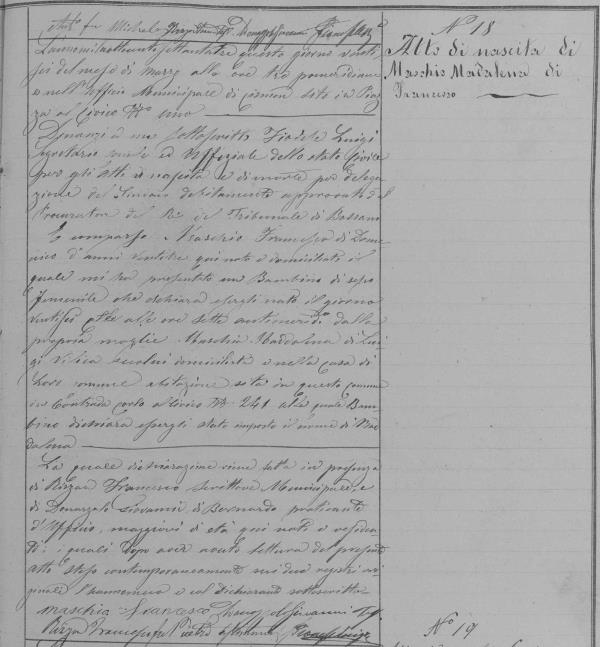 N° 18
Atto di nascita di
Maschio Madalena di
Francesco
L'anno mille ottocento settantatre questo giorno venti
sei del mese di marzo alle ore tre pomeridiane
e nell'Ufficio Municipale di sito in Piaz
za al Civico N° uno
Dinanzi a me sottoscritto Luigi
Segretario ed Uffiziale dello stato Civile
per gli atti di nascita e di morte per delega
zione del Sindaco debitamente approvata dal
Procuratore del Re del Tribunale di Bassano
È comparso Maschio Francesco di Dome
nico d'anni ventitre qui nato e domiciliato il
quale mi ha presentato un Bambino di sesso
femenile che dichiara essergli nato il giorno
ventisei alle ore sette antimerid. dalla
propria moglie Maschio Maddalena di Lui
gi domiciliata e nella casa di
loro comune abitazione sita in questo comune
in Contrada al Civico N° 241 alla quale Bam
bino dichiara essergli stato imposto il nome di Mad
dalena
La quale dichiarazione viene fatta in presenza
di Francesco scrittore Municipale, e
di Giovanni di Bernardo praticante
d'Ufficio, maggiori di età qui nati e residen
ti: i quali dopo aver avuto lettura del presente
atto steso contemporaneamente nei due registri ori
ginali l'hanno meco e col dichiarante sottoscritto
maschio francesco Giovanni
Francesco
N° 19